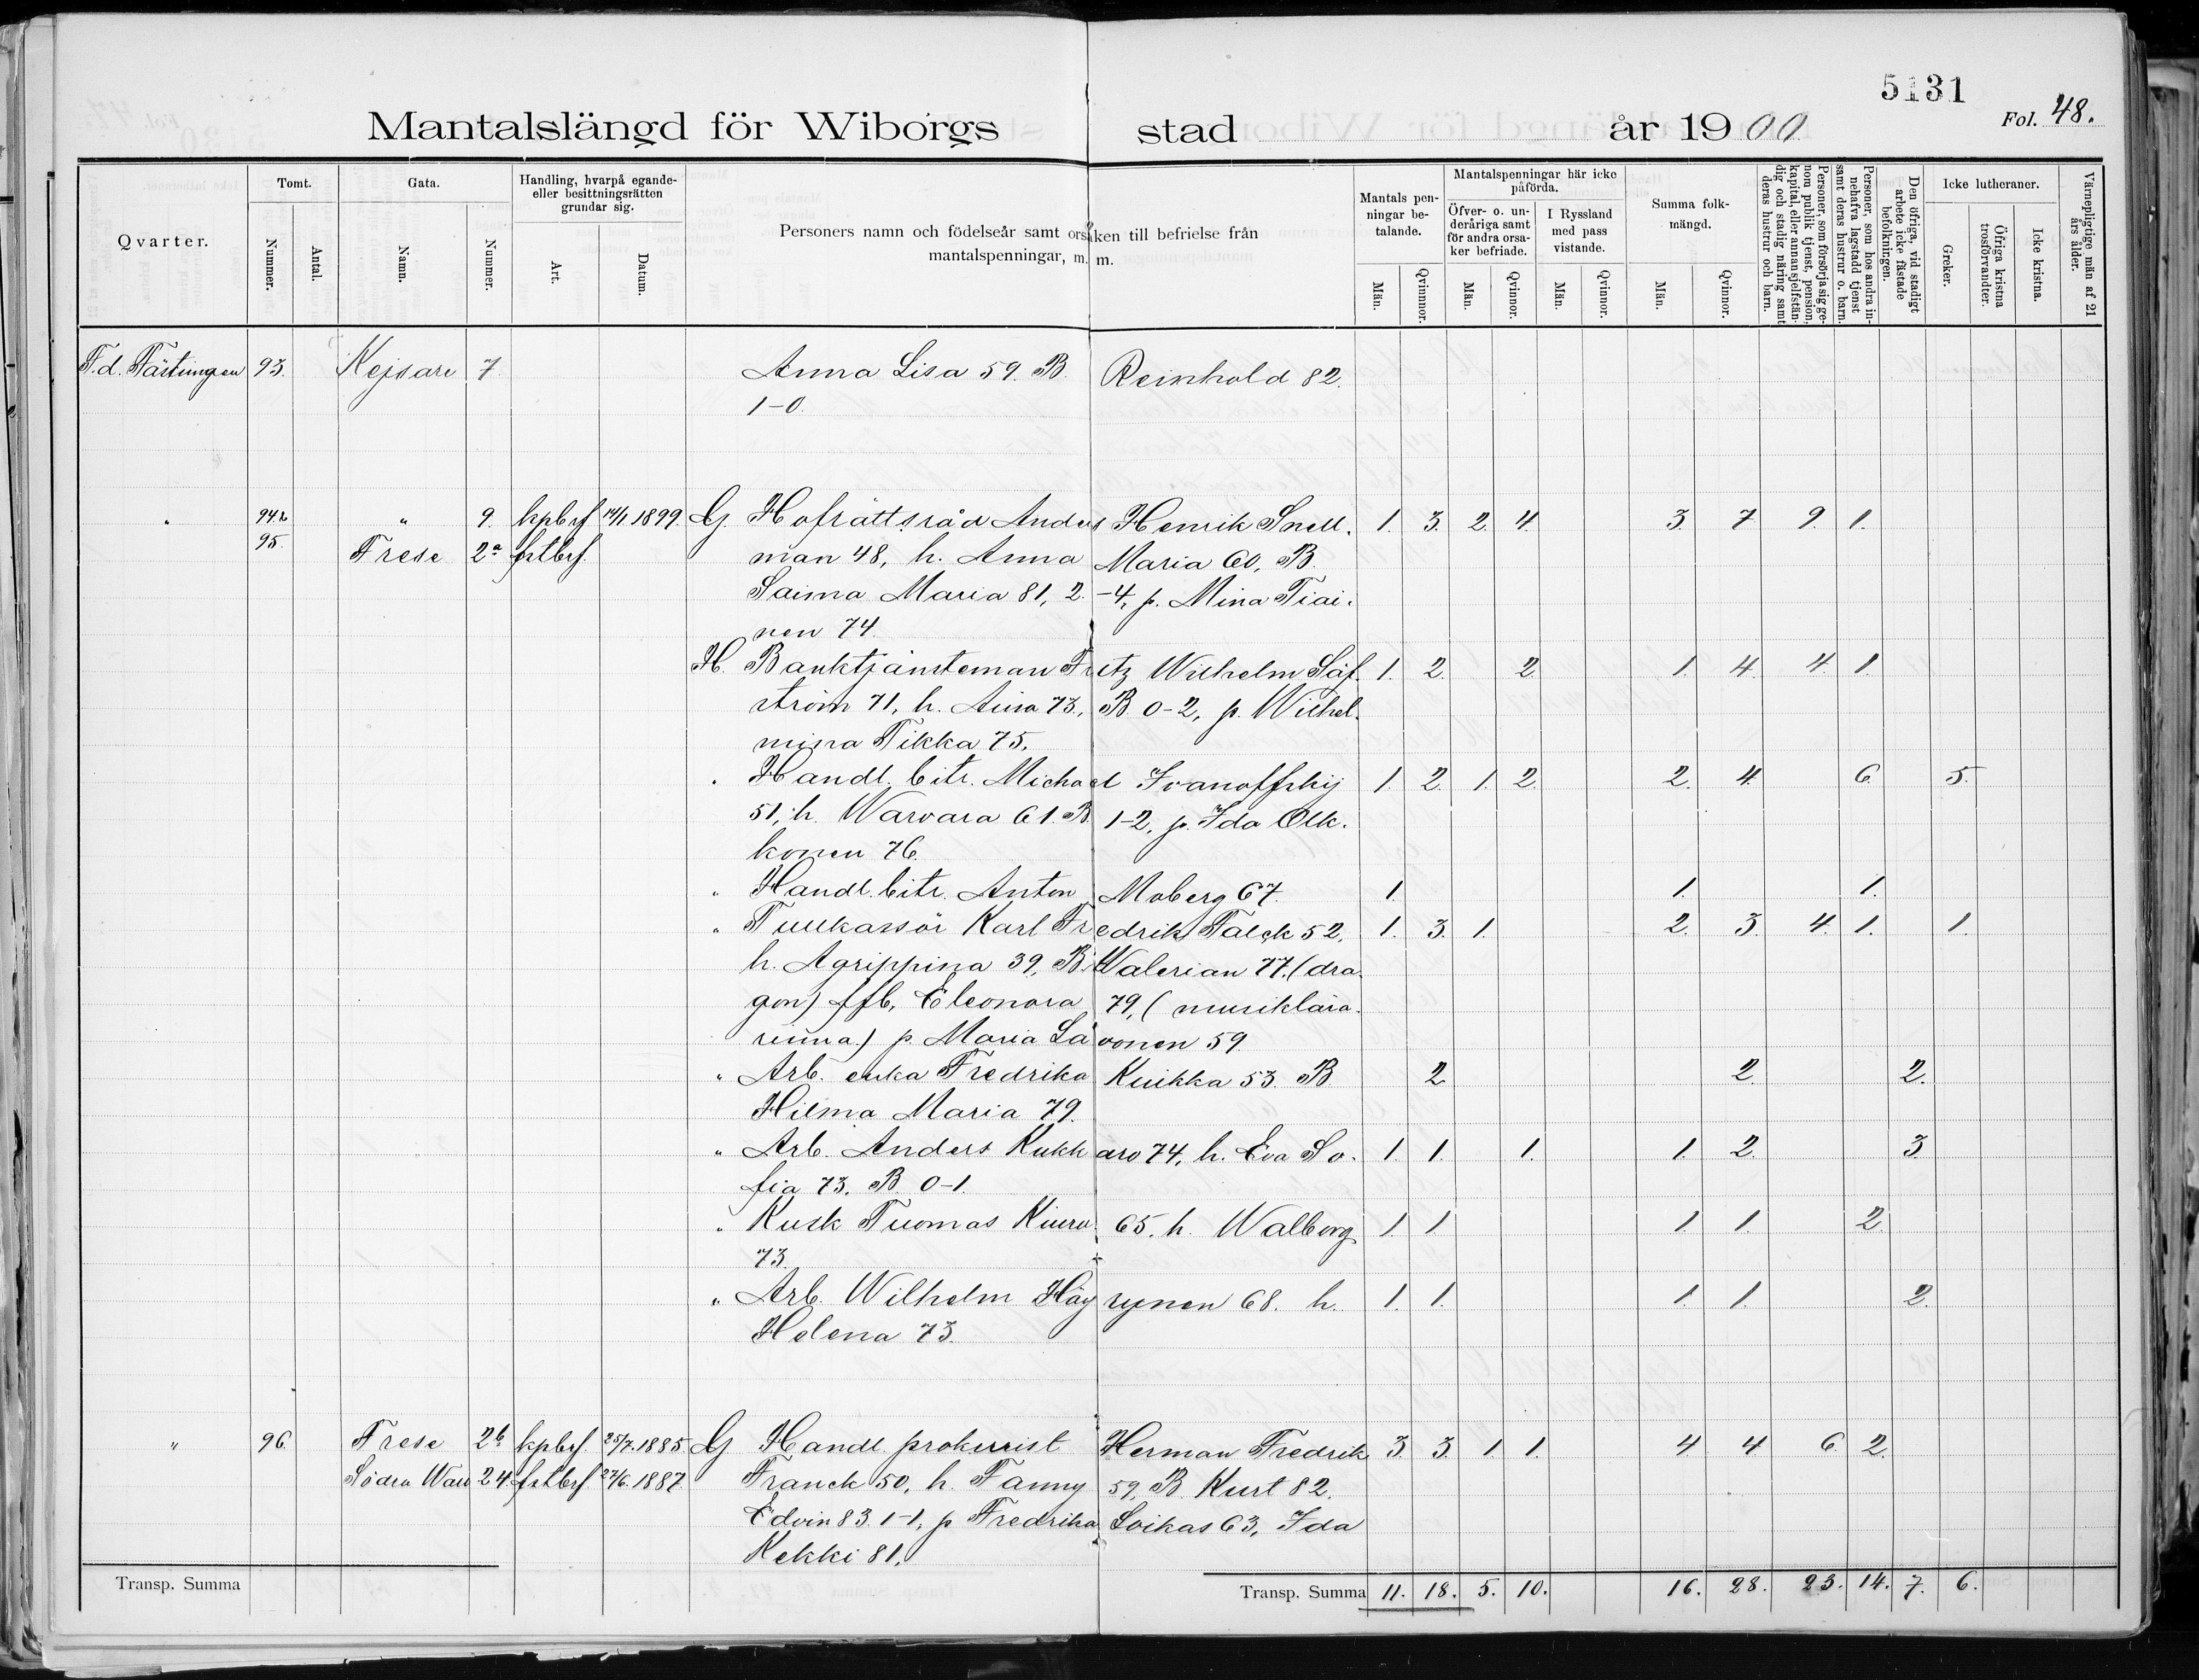 5131
Mantalslängd för Wiborgs stad år 1900 Fol. 48.
Qvarter.
Tomt.
Nummer.
Antal.
Gata.
Namn.
Nummer.
Handling, hvarpå egande-
eller besittningsrätten
grundar sig.
Art.
Datum.
Personers namn och födelseår samt orsaken till befrielse från
mantalspenningar, m. m.
Mantals pen-
ningar be-
talande.
Män.
Qvinnor.
Mantalspenningar här icke
påförda.
Öfver- o. un-
deråriga samt
för andra orsa-
ker befriade.
Män.
Qvinnor.
I Ryssland
med pass
vistande.
Män.
Qvinnor.
Summa folk-
mängd.
Män.
Qvinnor.
Personer, som försörja sig ge-
nom publik tjenst, pension,
kapital, eller annan sjelfstän-
dig och stadig näring samt
deras hustrur och barn.
Personer, som hos andra in-
nehafva lagstadd tjenst
samt deras hustrur o. barn.
Den öfriga, vid stadigt
arbete icke fästade
befolkningen.
Icke lutheraner.
Greker.
Öfriga kristna
trosförvandter.
Icke kristna.
Värnepligtige män af 21
års ålder.
F.d. Fästningen 93. Kejsare 7 Anna Lisa 59. B. Reinhold 82.
1-0.
" 94b " 9. kpbrf 14/1 1899. G Hofrättsråd Anders Henrik Snell. 1. 3. 2. 4. 3. 7 9. 1.
95. Frese 2a fstbrf. man 48, h. Anna Maria 60, B.
Saima Maria 81, 2.-4, p. Mina Tiai.
nen 74.
H. Banktjänsteman Fritz Wilhelm Säf. 1. 2. 2. 1. 4. 4. 1.
ström 71, h. Aina 73, B. 0-2, p. Wilhel.
mina Tikka 75.
" Handl. bitr. Michael Ivanoffskij 1. 2. 1. 2. 2. 4. 6. 5.
51, h. Warvara 61. B. 1-2, p. Ida Olk.
konen 76.
" Handl. bitr. Anton Moberg 67. 1. 1. 1.
" Tullkassör Karl Fredrik Falck 52, 1. 3. 1. 2. 3. 4. 1. 1.
h. Agrippina 39, B. Walerian 77. (dra.
gon) ffb, Eleonora 79, (musiklära.
rinna) p. Maria Lavonen 59.
" Arb. enka Fredrika Kuikka 53. B 2 2. 2.
Hilma Maria 79.
" Arb. Anders Kukkaro 74, h. Eva So. 1. 1. 1. 1. 2. 3.
fia 73. B. 0-1.
" Kusk Tuomas Kiuru 65. h. Walborg 1. 1 1. 1. 2.
73.
" Arb. Wilhelm Häyrynen 68. h. 1. 1. 1. 1. 2.
Helena 73.
" 96. Frese 2b kpbrf. 25/7.1885. G Handl. prokurist Herman Fredrik 3. 3. 1. 1. 4. 4. 6. 2.
Södra Wall 24. fstbrf. 27/6.1887. Franck 50, h. Fanny 59, B. Kurt 82.
Edvin 83. 1-1, p Fredrika Loikas 63, Ida
Kekki 81.
Transp. Summa Transp. Summa 11. 18. 5. 10. 16. 28. 23. 14. 7. 6.